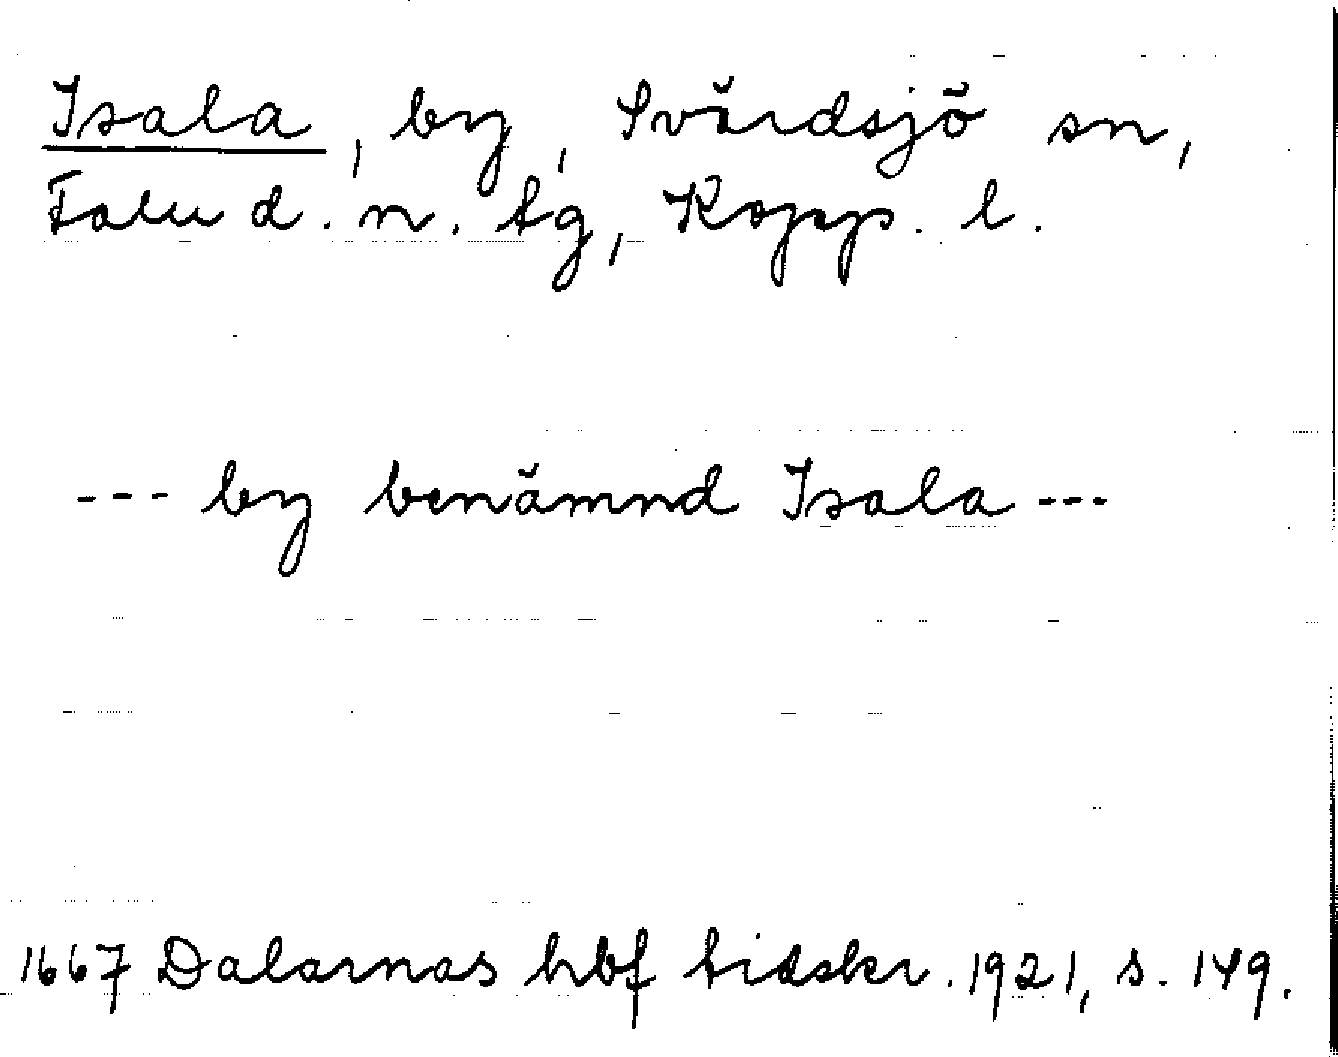 Isala, by, Svärdsjö sn,
Falu d. n. tg, Kopp. l.
--- by benämnd Isala ---
1667 Dalarnas hbf tidskr. 1921, s. 149.